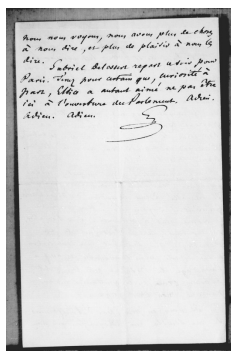 nous nous voyons, nous avons plus de choses
à nous dire, et plus de plaisir à nous le
dire.
Gabriel Delessert repart ce soir pour
Paris. Tenez pour certain que, curiosité à
part, Ellice a autant aimé ne pas être
ici à l'ouverture du Parlement. Adieu.
Adieu. Adieu.